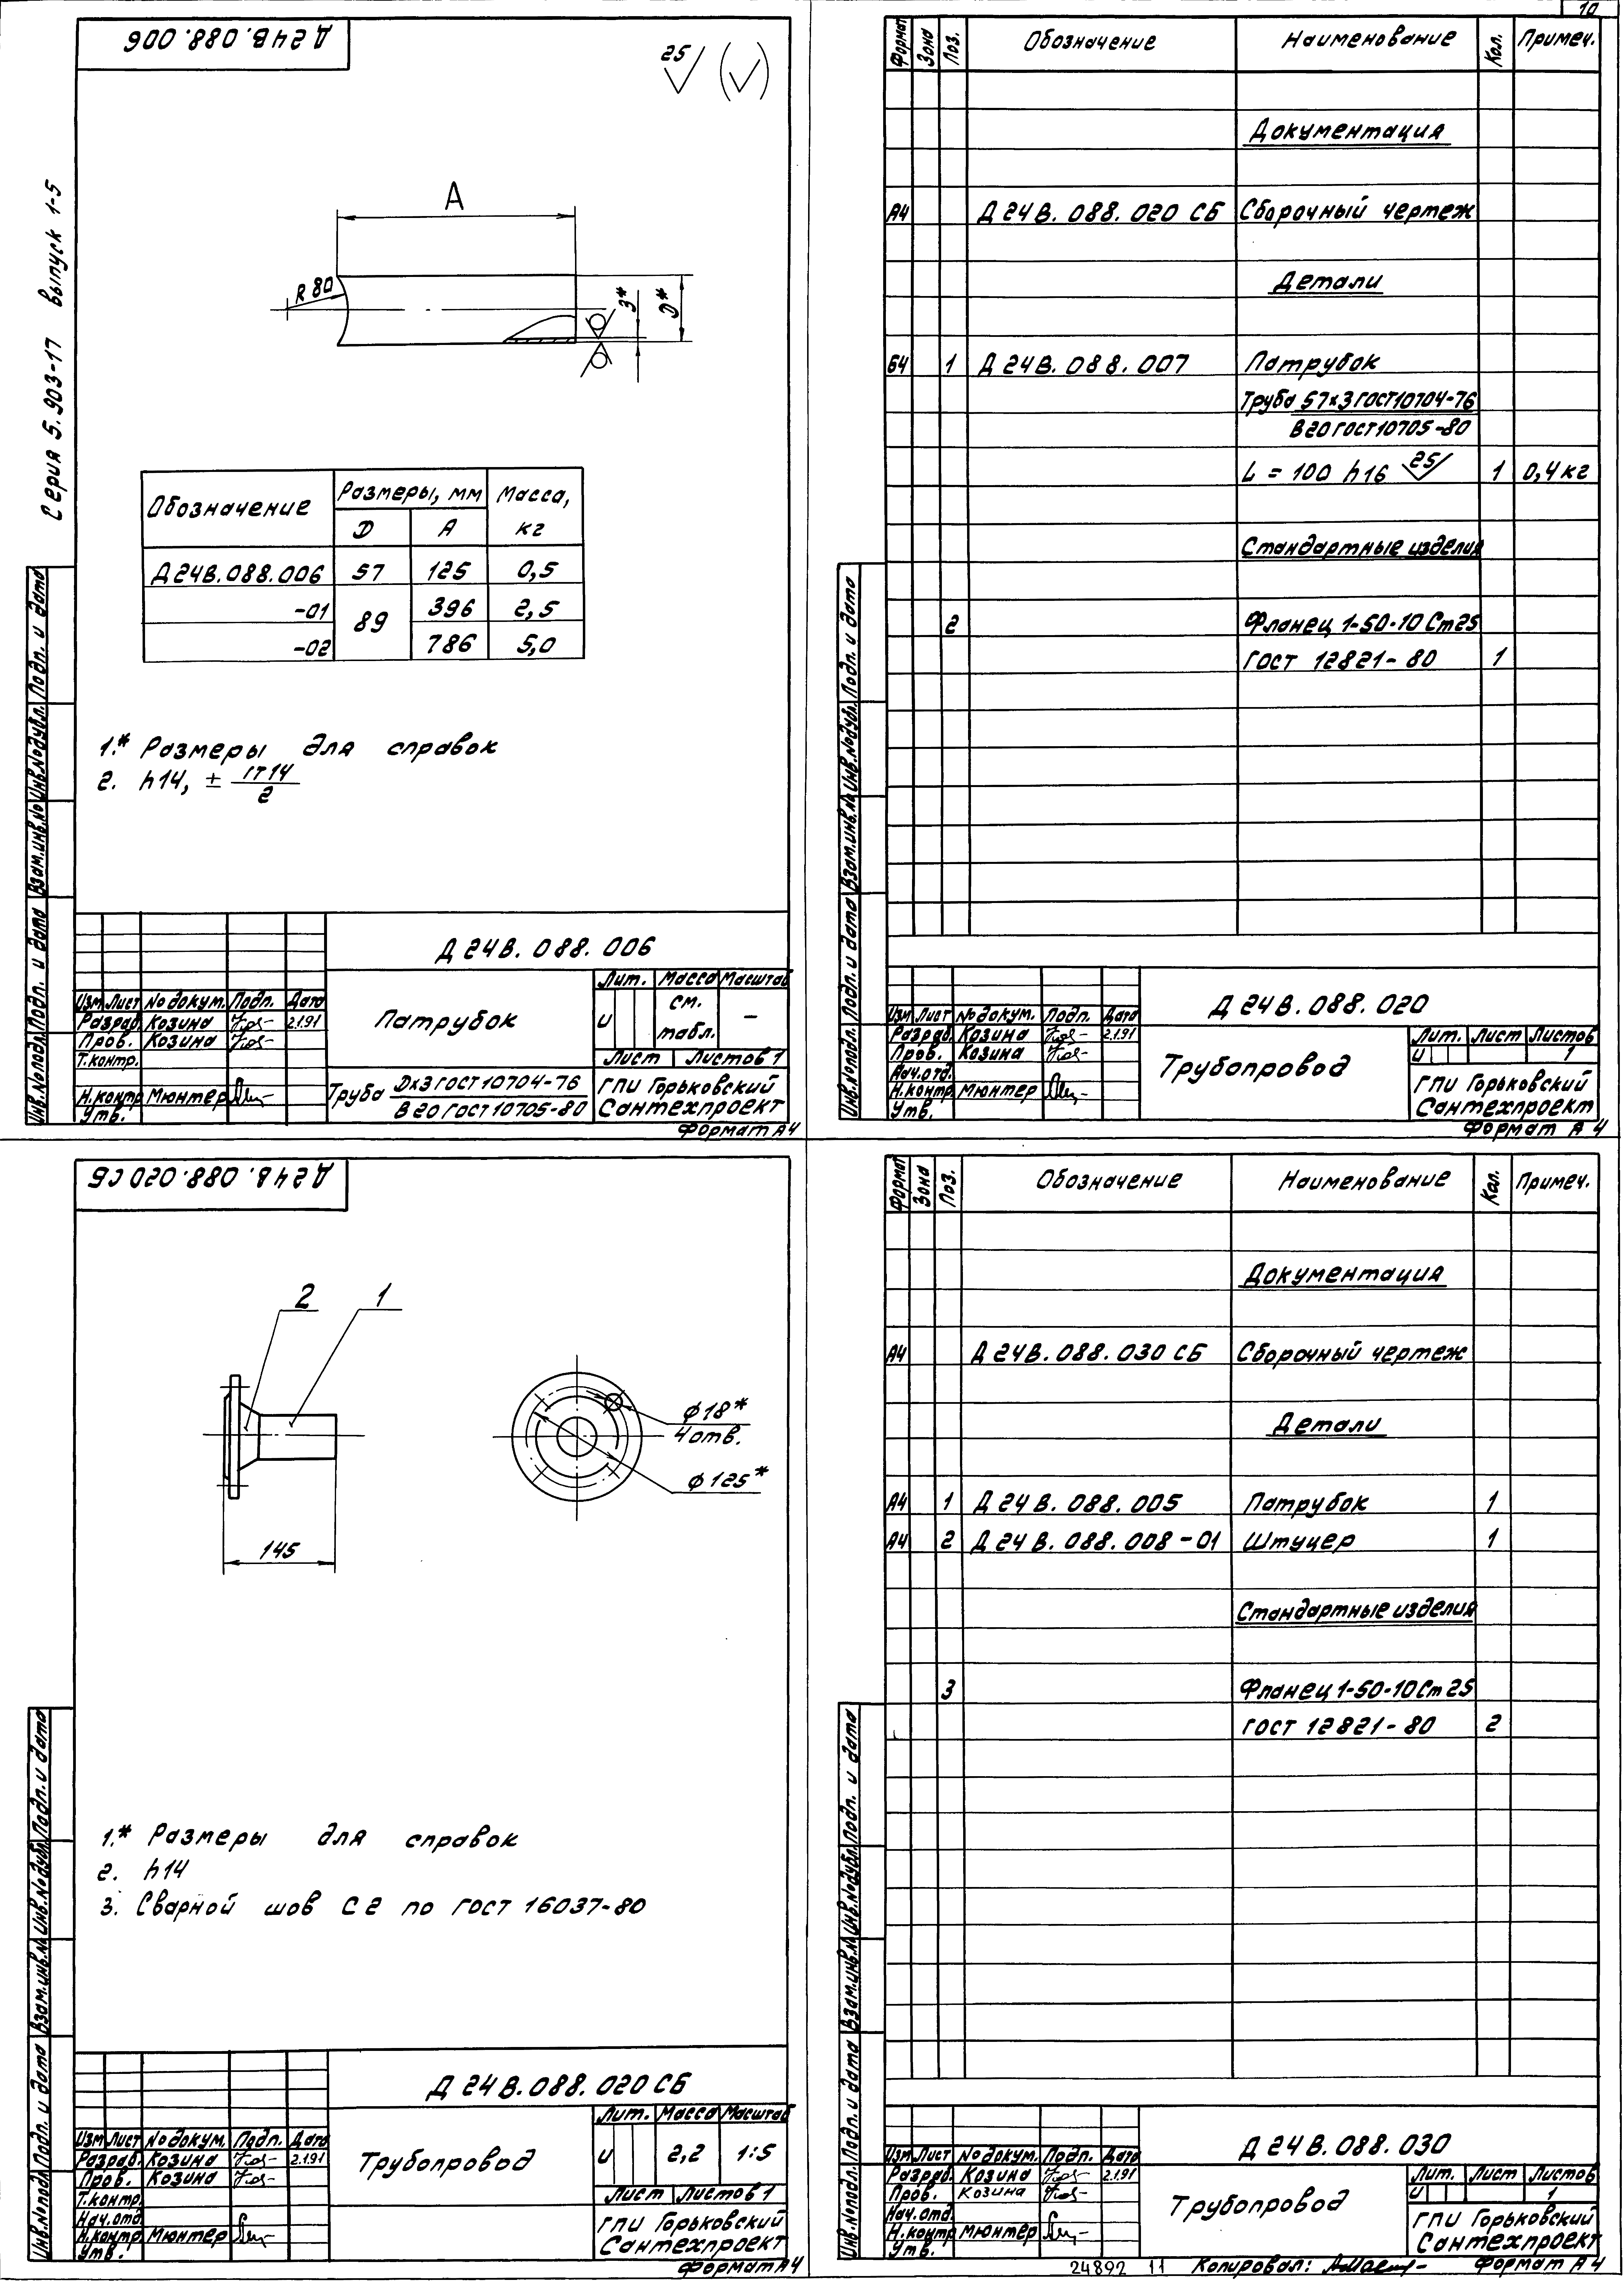 10
Серия 5.903-17 выпуск 1-5
Д24В.088.006
25
А
R 80
3*
D*
Обозначение Размеры, мм Масса, кг
D А
Д24В.088.006 57 125 0,5
-01 89 396 2,5
-02 786 5,0
1.* Размеры для справок
2. h14, ± IT14/2
Инв.№подл. Подп. и дата Взам.инв.№ Инв.№дубл. Подп. и дата
Д 24 В. 088. 006
Изм Лист № докум. Подп. Дата
Разраб. Козина 2.1.91
Пров. Козина
Т.контр.
Н.контр. Мюнтер
Утв.
Патрубок
Лит. Масса Масштаб
И см. табл. –
Лист Листов 1
Труба Dx3 ГОСТ 10704-76
В20 ГОСТ 10705-80
ГПИ Горьковский
Сантехпроект
Формат А4
Формат Зона Поз. Обозначение Наименование Кол. Примеч.
Документация
А4 Д 24 В. 088. 020 СБ Сборочный чертеж
Детали
Б4 1 Д 24 В. 088. 007 Патрубок
Труба 57х3 ГОСТ10704-76
В20 ГОСТ10705-80
L = 100 h16 25 1 0,4 кг
Стандартные изделия
2 Фланец 1-50-10 Ст25
ГОСТ 12821-80 1
Инв.№подл. Подп. и дата Взам.инв.№ Инв.№дубл. Подп. и дата
Д 24 В. 088. 020
Изм Лист № докум. Подп. Дата
Разраб. Козина 2.1.91
Пров. Козина
Нач.отд.
Н.контр Мюнтер
Утв.
Трубопровод
Лит. Лист Листов
И 1
ГПИ Горьковский
Сантехпроект
Формат А 4
Д 24 В. 088. 020 СБ
2 1
145
ф18*
4отв.
ф125*
1.* Размеры для справок
2. h14
3. Сварной шов С2 по ГОСТ 16037-80
Инв.№подл. Подп. и дата Взам.инв.№ Инв.№дубл. Подп. и дата
Д 24 В. 088. 020 СБ
Изм Лист № докум. Подп. Дата
Разраб. Козина 2.1.91
Пров. Козина
Т.контр.
Нач.отд.
Н.контр Мюнтер
Утв.
Трубопровод
Лит. Масса Масштаб
И 2,2 1:5
Лист Листов 1
ГПИ Горьковский
Сантехпроект
Формат А4
Формат Зона Поз. Обозначение Наименование Кол. Примеч.
Документация
А4 Д 24 В. 088. 030 СБ Сборочный чертеж
Детали
А4 1 Д 24 В. 088. 005 Патрубок 1
А4 2 Д 24 В. 088. 008-01 Штуцер 1
Стандартные изделия
3 Фланец 1-50-10 Ст 25
ГОСТ 12821-80 2
Инв.№подл. Подп. и дата Взам.инв.№ Инв.№дубл. Подп. и дата
Д 24 В. 088. 030
Изм Лист № докум. Подп. Дата
Разраб. Козина 2.1.91
Пров. Козина
Нач.отд.
Н.контр Мюнтер
Утв.
Трубопровод
Лит. Лист Листов
И 1
ГПИ Горьковский
Сантехпроект
24892 11 Копировал: Формат А 4